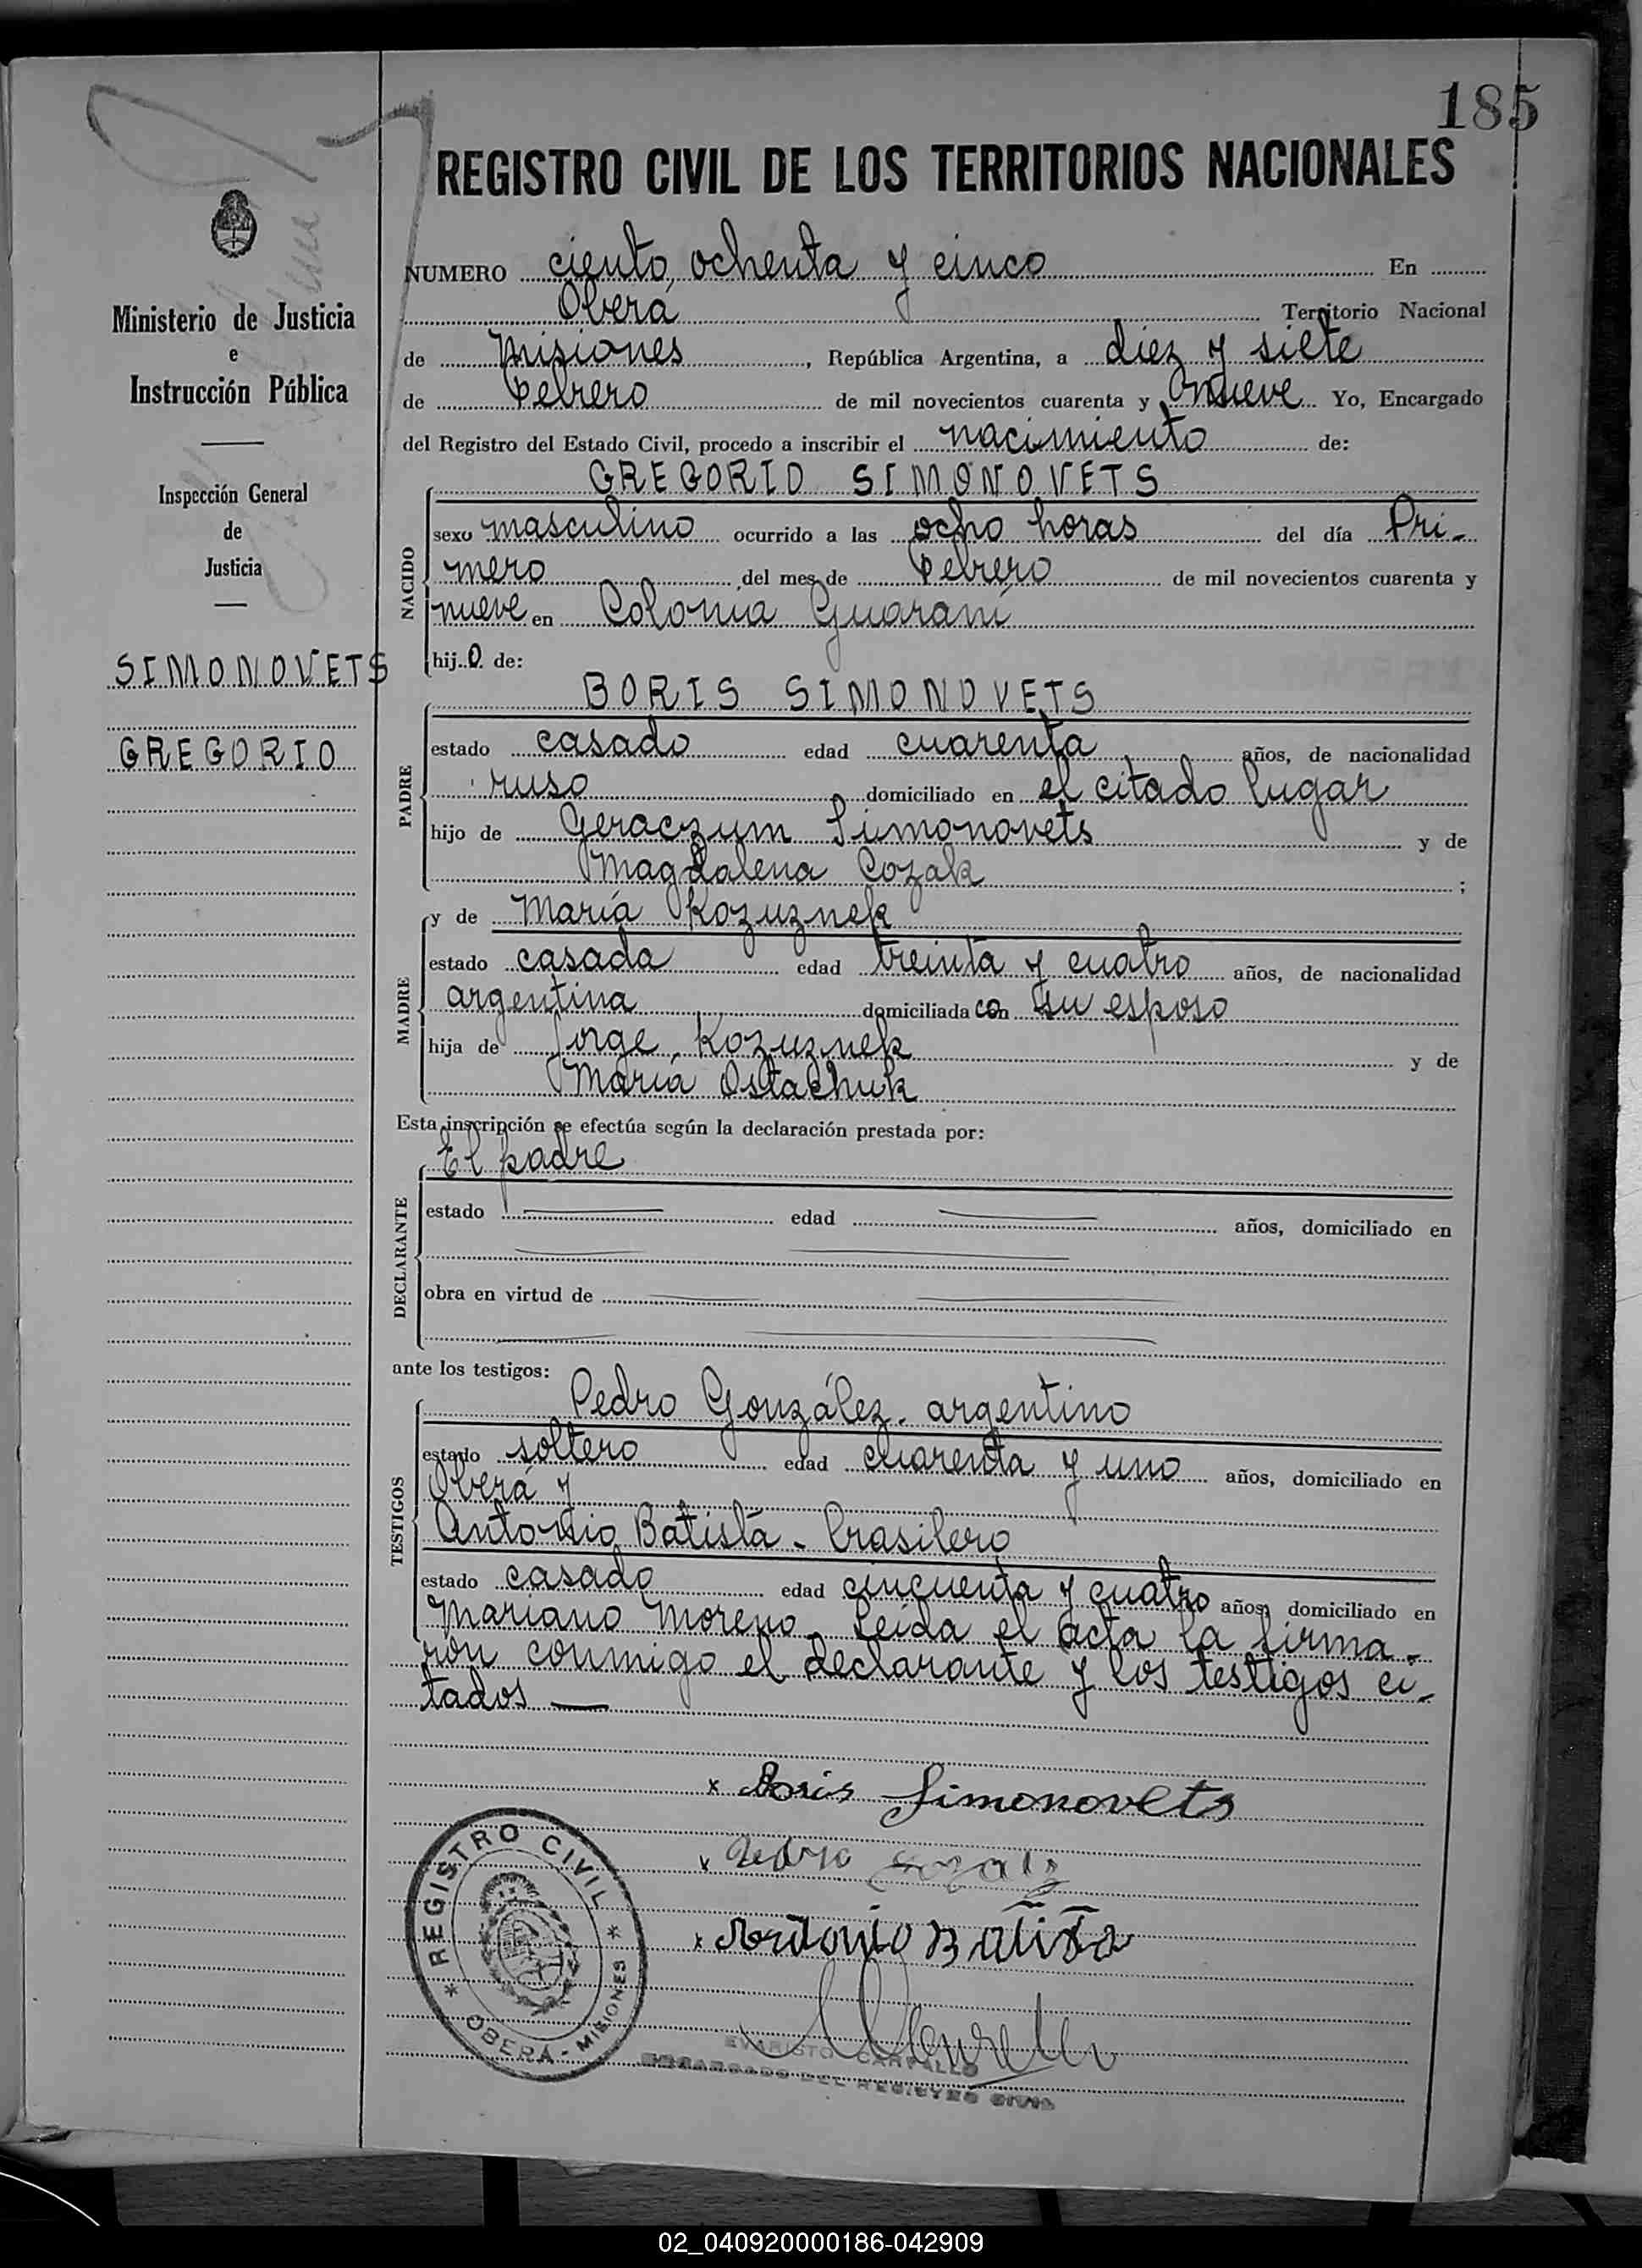 185
REGISTRO CIVIL DE LOS TERRITORIOS NACIONALES
Ministerio de Justicia
e
Instrucción Pública
Inspección General
de
Justicia
SIMONOVETS
GREGORIO
NUMERO ciento ochenta y cinco En
Oberá Territorio Nacional
de Misiones, República Argentina, a diez y siete
de Febrero de mil novecientos cuarenta y nueve Yo, Encargado
del Registro del Estado Civil, procedo a inscribir el nacimiento de:
GREGORIO SIMONOVETS
NACIDO
sexo masculino ocurrido a las ocho horas del día Pri-
mero del mes de Febrero de mil novecientos cuarenta y
nueve en Colonia Guaraní
hijo de:
BORIS SIMONOVETS
PADRE
estado casado edad cuarenta años, de nacionalidad
ruso domiciliado en el citado lugar
hijo de Geraczum Simonovets y de
Magdalena Cozak ;
MADRE
y de María Kozuznek
estado casada edad treinta y cuatro años, de nacionalidad
argentina domiciliada con su esposo
hija de Jorge Kozuznek y de
María Ostachuk
Esta inscripción se efectúa según la declaración prestada por:
DECLARANTE
El padre
estado edad años, domiciliado en
obra en virtud de
ante los testigos:
TESTIGOS
Pedro González - argentino
estado soltero edad cuarenta y uno años, domiciliado en
Oberá y
Antonio Batista - brasilero
estado casado edad cincuenta y cuatro años, domiciliado en
Mariano Moreno. Leída el acta la firma-
ron conmigo el declarante y los testigos ci-
tados —
x Boris Simonovets
x Pedro
x Antonio Batista
* REGISTRO CIVIL *
OBERÁ - MISIONES
EVARISTO CARFALLO
ENCARGADO DEL REGISTRO CIVIL
02_040920000186-042909